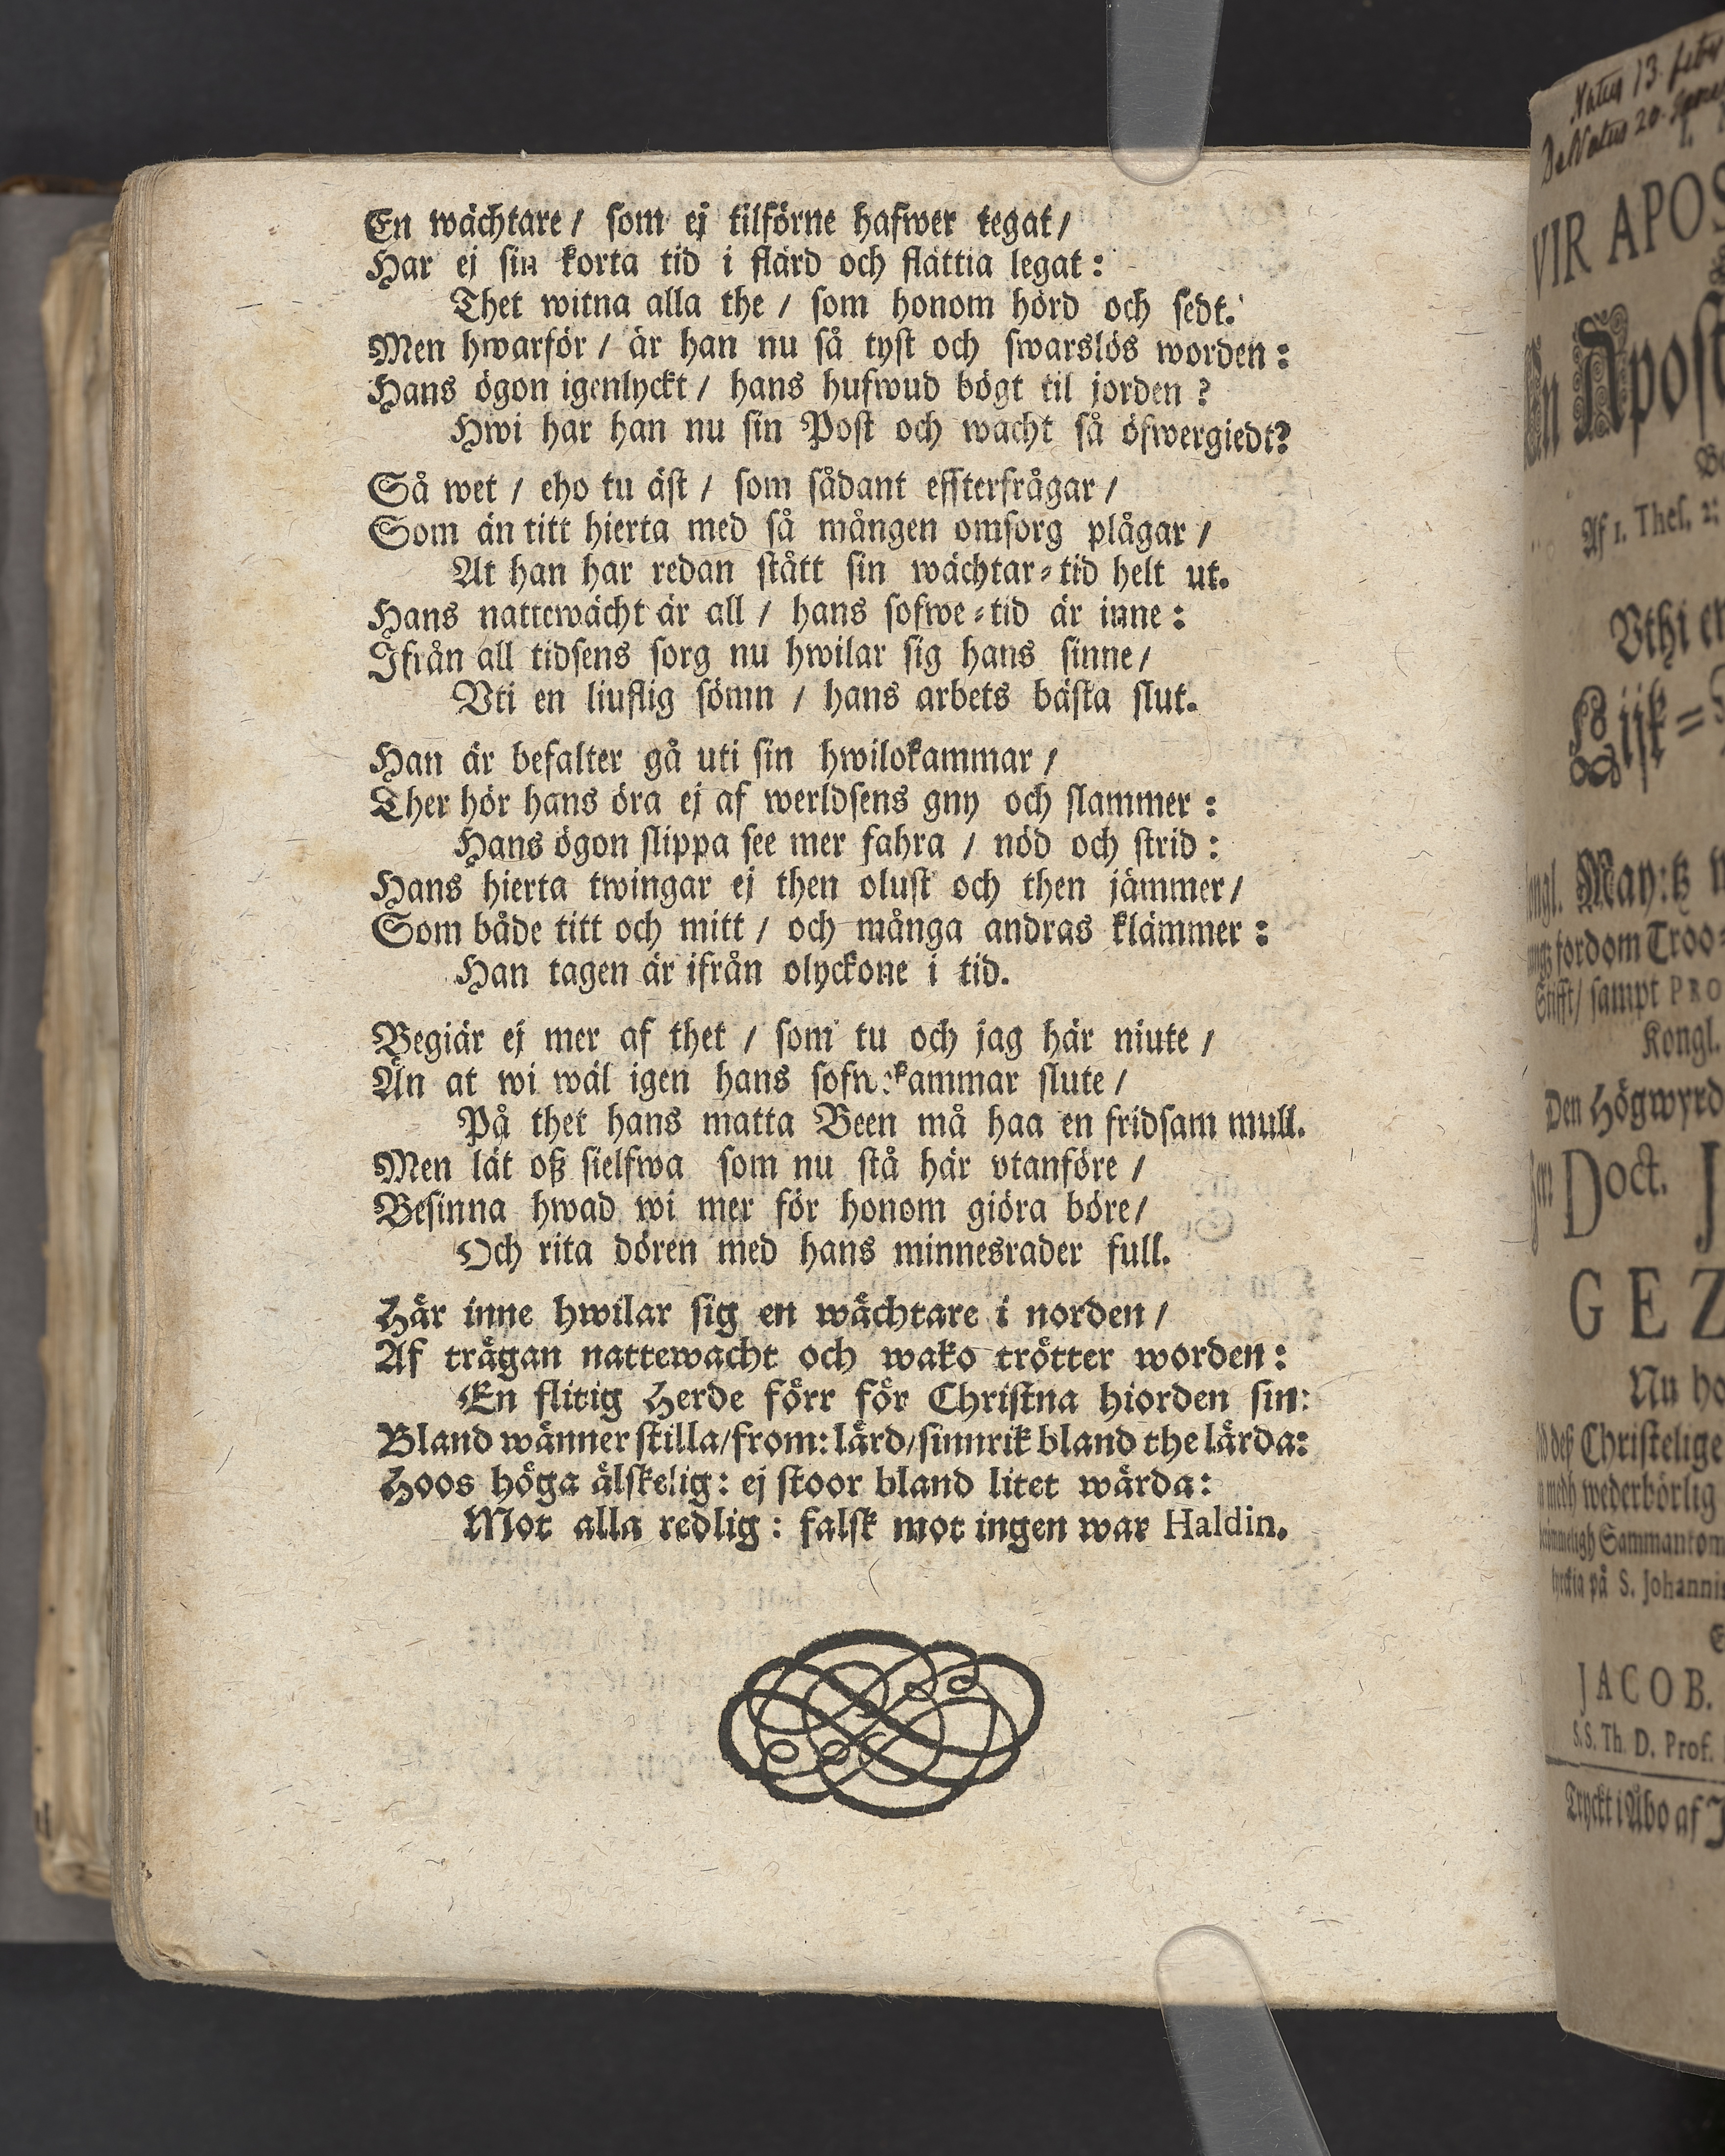 En wächtare / som ej tilförne hafwer tegat /
Har ej sin korta tid i flärd och flättia legat :
Thet witna alla the / som honom hörd och sedt.
Men hwarför / är han nu så tyst och swarslös worden :
Hans ögon igenlyckt / hans hufwud bögt til jorden ?
Hwi har han nu sin Post och wacht så öfwergiedt?
Så wet / eho tu äst / som sådant effterfrågar /
Som än titt hierta med så mången omsorg plågar /
At han har redan stått sin wächtar-tid helt ut.
Hans nattewächt är all / hans sofwe-tid är inne :
Ifrån all tidsens sorg nu hwilar sig hans sinne /
Vti en liuflig sömn / hans arbets bästa slut.
Han är befalter gå uti sin hwilokammar /
Ther hör hans öra ej af werldsens gny och slammer :
Hans ögon slippa see mer fahra / nöd och strid :
Hans hierta twingar ej then olust och then jämmer /
Som både titt och mitt / och många andras klämmer :
Han tagen är ifrån olyckone i tid.
Begiär ej mer af thet / som tu och jag här niute /
Än at wi wäl igen hans slute /
På thet hans matta Been må haa en fridsam mull.
Men lät oß sielfwa som nu stå här vtanföre /
Besinna hwad wi mer för honom giöra böre /
Och rita dören med hans minnesrader full.
Här inne hwilar sig en wächtare i norden /
Af trägan nattewacht och wako trötter worden :
En flitig Herde förr för Christna hiorden sin:
Bland wänner stilla / from: lärd / sinnrik bland the lärda:
Hoos höga älskelig : ej stoor bland litet wärda :
Mot alla redlig : falsk mot ingen war Haldin.
Natus 13 febr
Denatus 20
VIR APOS
En Apost
Af 1. Thes. 2:
Vthi en
Lijk=
May:tz
fordom Troo=
Stifft / sampt PRO
Kongl.
Den Högwyrd
Doct. J
GEZ
Nu ho
deß Christelige
medh wederbörlig
Sammankom
på S. Johannis
JACOB.
S.S. Th. D. Prof.
Tryckt i Åbo af J